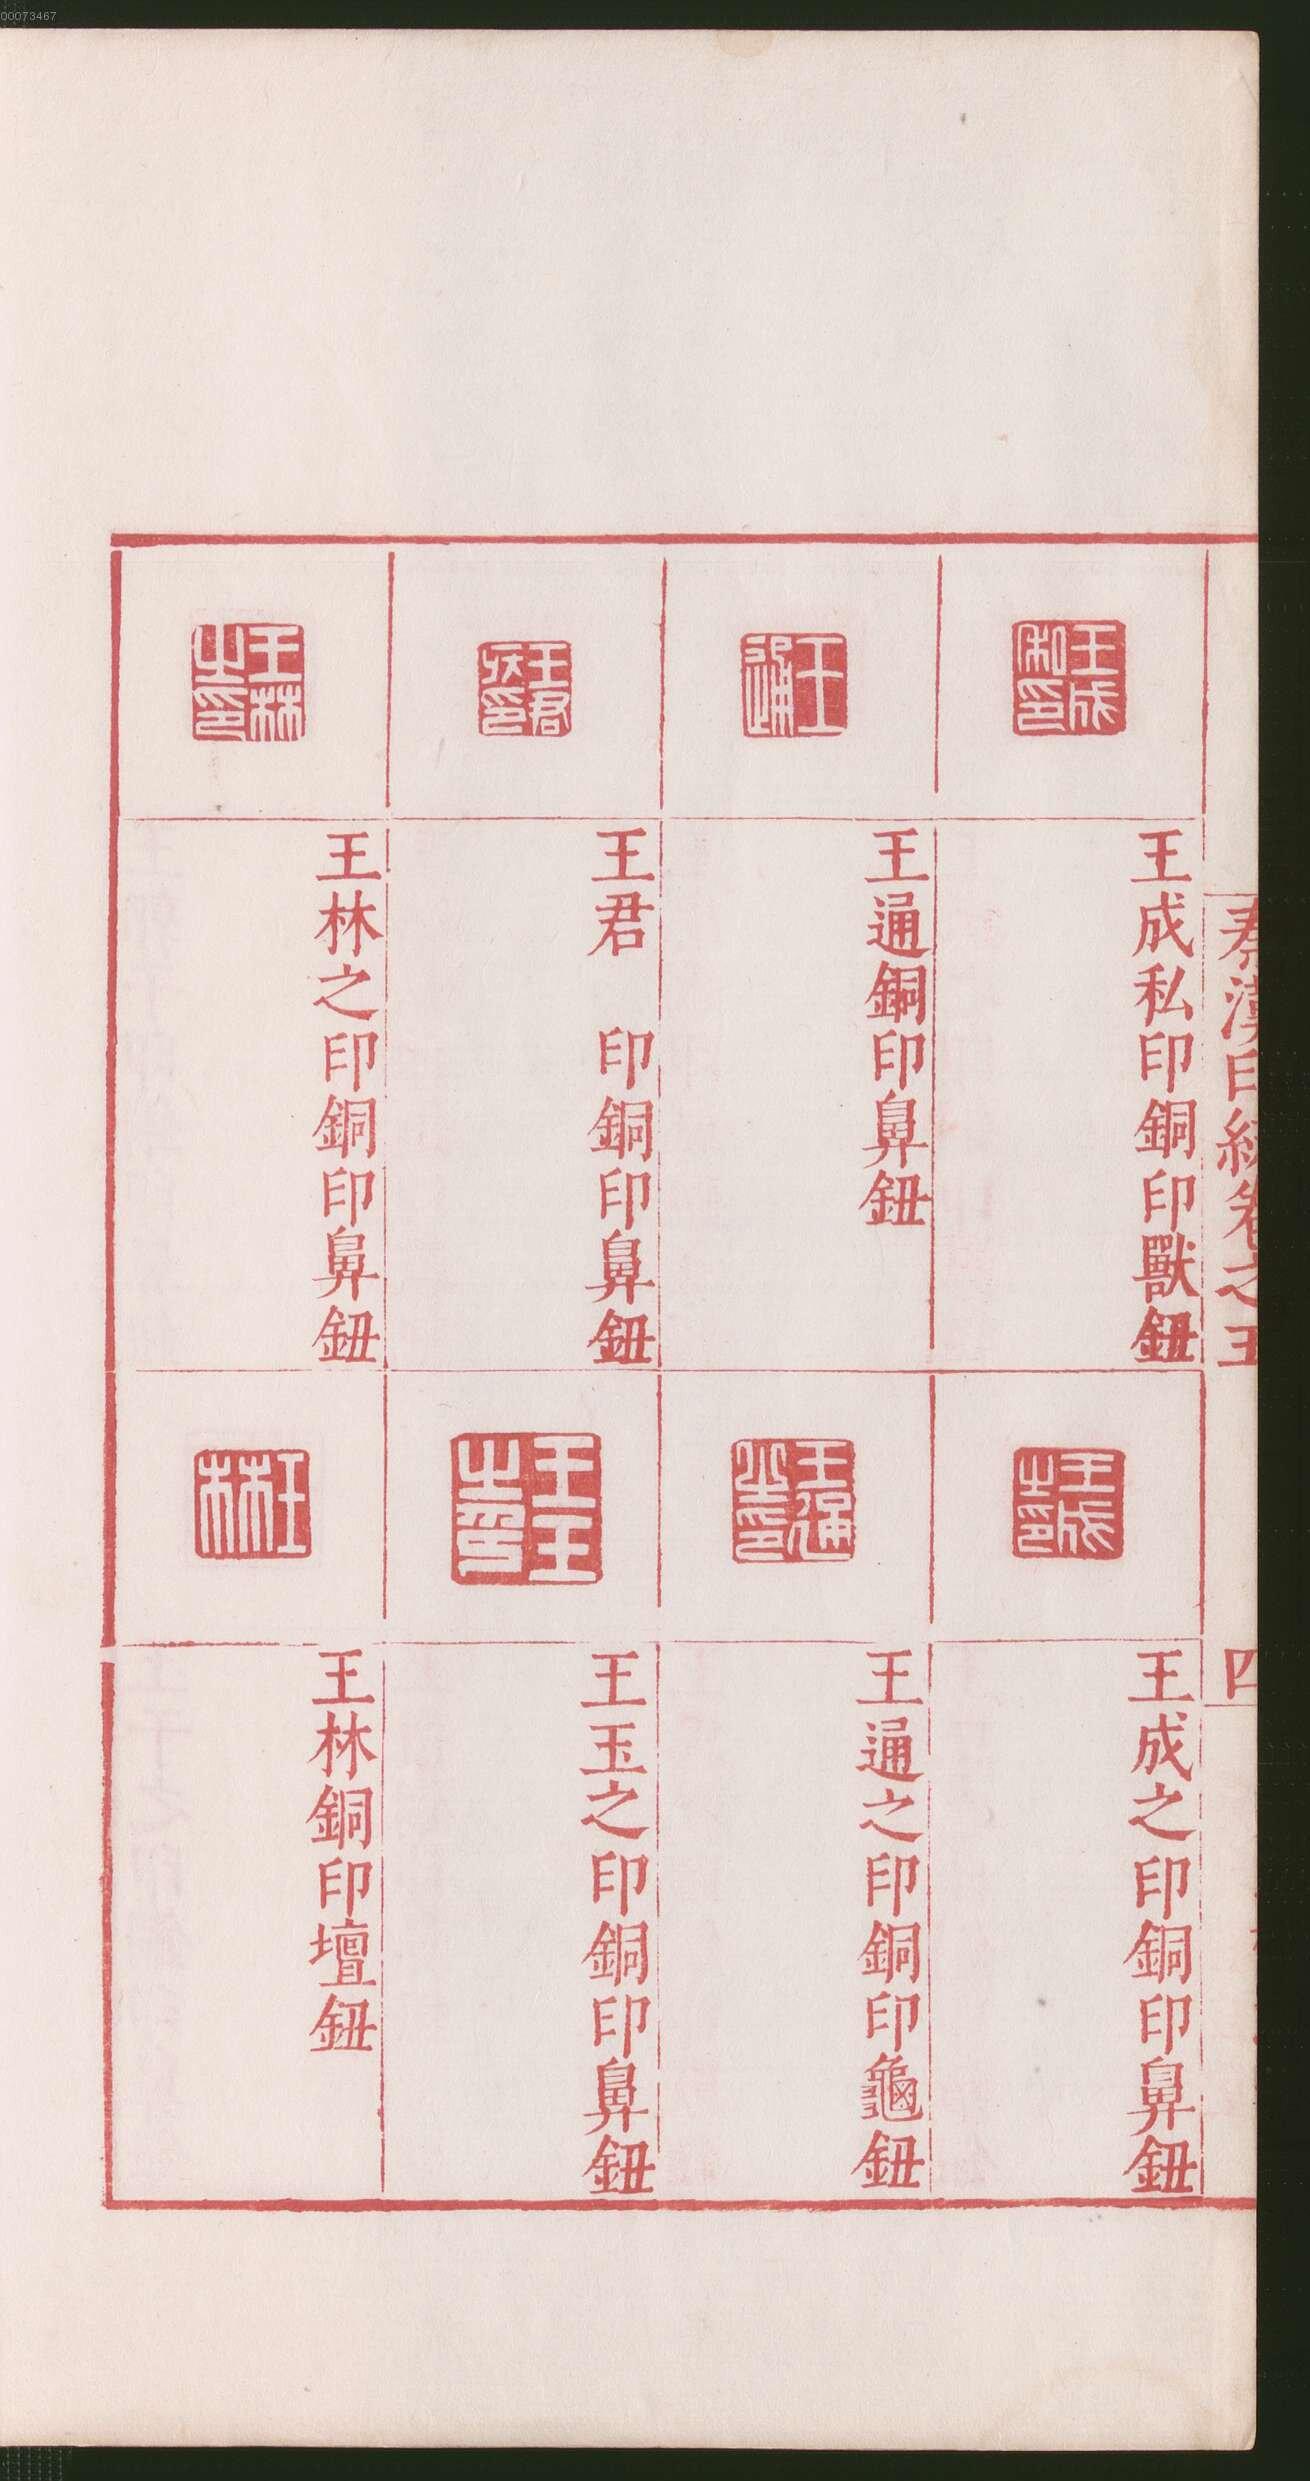 00073467
秦漢印統卷之五
四
王成私印
王成私印銅印獸鈕
王成之印
王成之印銅印鼻鈕
王通
王通銅印鼻鈕
王通之印
王通之印銅印龜鈕
王君印
王君　印銅印鼻鈕
王玉之印
王玉之印銅印鼻鈕
王林之印
王林之印銅印鼻鈕
王林
王林銅印壇鈕